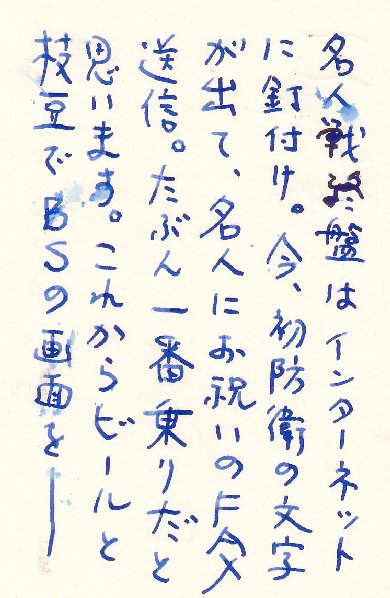 名人戦終盤はインターネット
に釘付け。今、初防衛の文字
が出て、名人にお祝いのFAX
送信。たぶん一番乗りだと
思います。これからビールと
枝豆でBSの画面を――